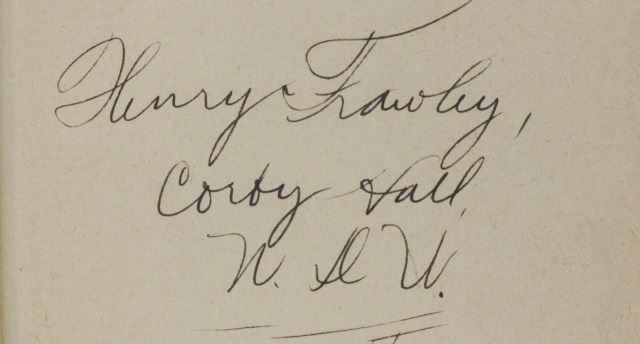 Henry Frawley,
Corby Hall,
N. D U.